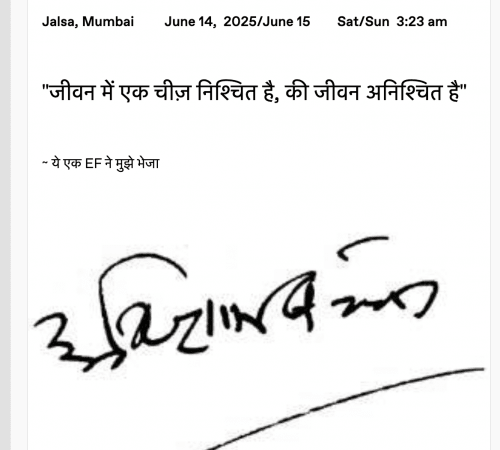 Jalsa, Mumbai June 14, 2025/June 15 Sat/Sun 3:23 am
"जीवन में एक चीज़ निश्चित है, की जीवन अनिश्चित है"
~ ये एक EF ने मुझे भेजा